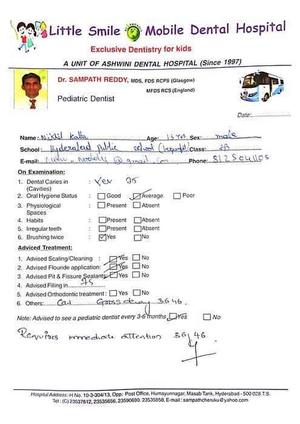 Little Smile Mobile Dental Hospital
Exclusive Dentistry for kids
A UNIT OF ASHWINI DENTAL HOSPITAL (Since 1897)
Dr. SAMPATH REDDY, MDS, FDS RCPS (Glasgow)
MFDS RCS (England)
Pediatric Dentist
Date:
Name: Nikhil Age: Sex: male
School: Hyderabad public school Class:
E-mail: Phone:
On Examination:
1. Dental Caries in (Cavities) : Yes 75
2. Oral Hygiene Status : Good Average Poor
3. Physiological Spaces : Present Absent
4. Habits : Present Absent
5. Irregular teeth : Present Absent
5. Brushing twice : Yes No
Adviced Treatment:
1. Advised Scaling/Cleaning : Yes No
2. Advised Flouride application: Yes No
3. Advised Pit & Fissure Sealants: Yes No
4. Advised Filling in 75
5. Advised Orthodontic treatment : Yes No
6. Others: Gross decay 36 46
Note: Advised to see a pediatric dentist every 3-6 months Yes No
Requires immediate attention 36 46
Hospital Address: H No. 10-3-304/13, Opp: Post Office, Humayunnagar, Masab Tank, Hyderabad - 500 028 T.S.
Tel: (C) 23537612, 23535656, 23590699, 23535658. E-mail : sampathcheruku@yahoo.com